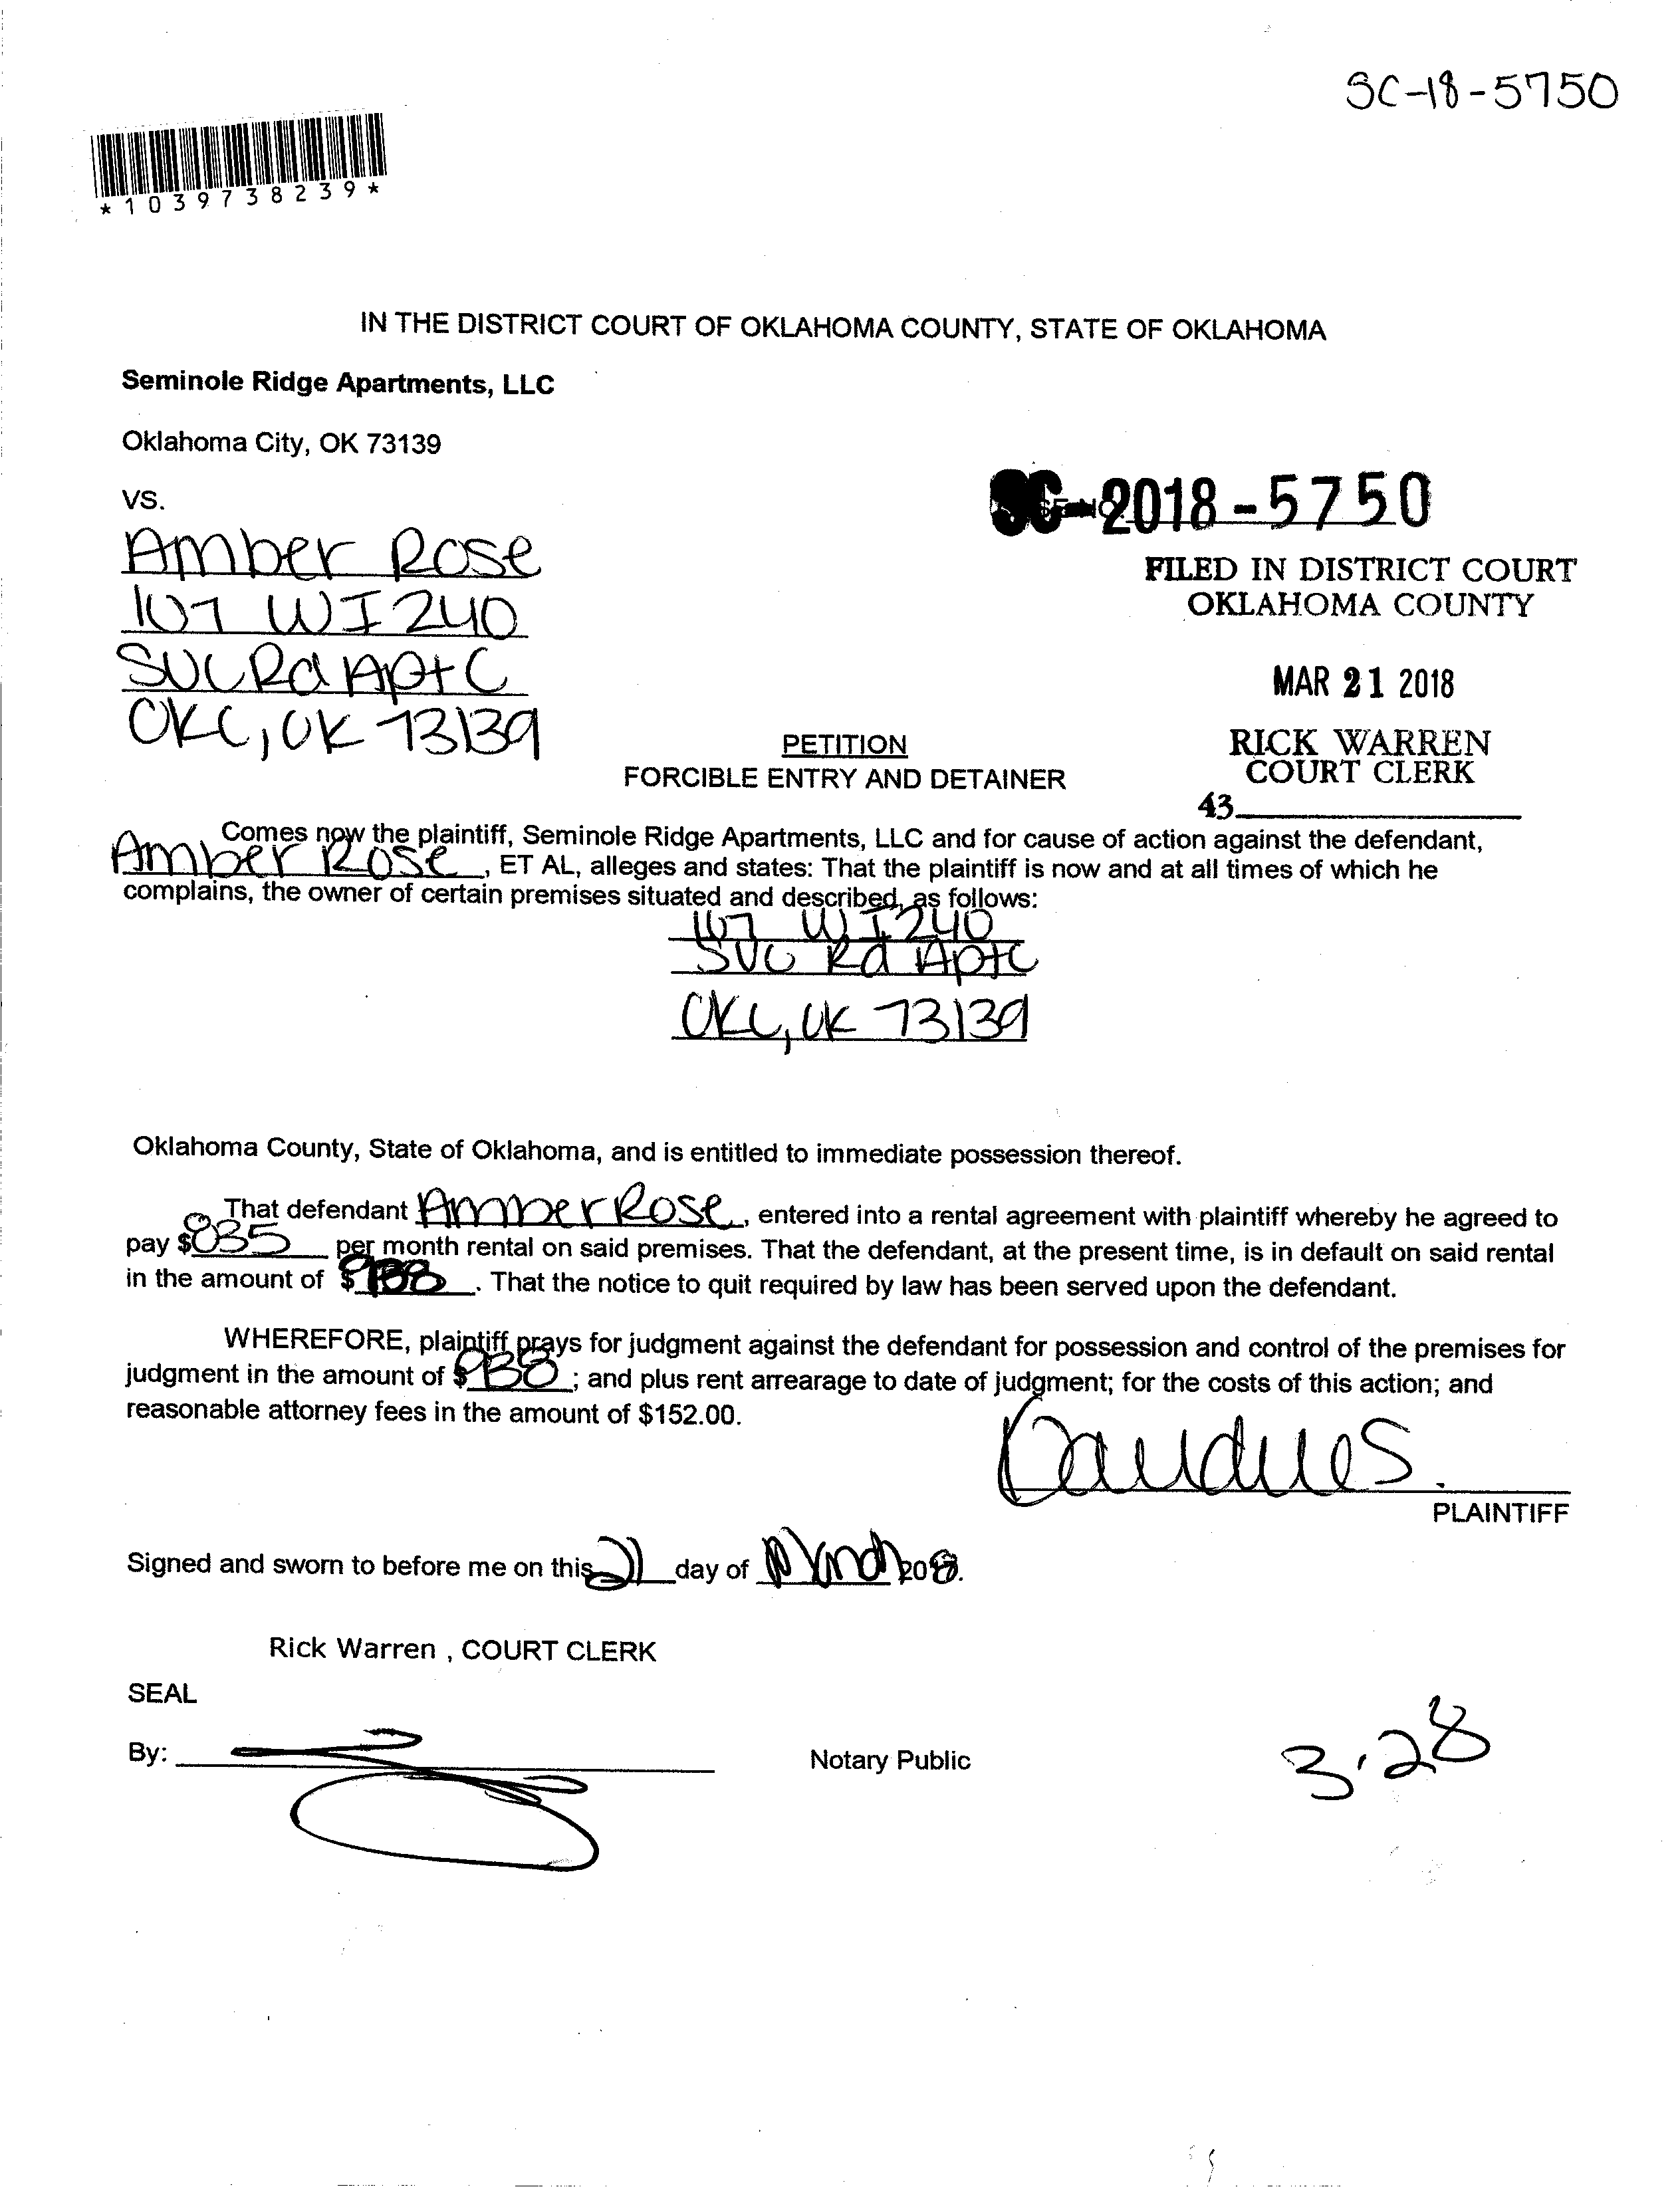 SC-18-5750
*1039738239*
IN THE DISTRICT COURT OF OKLAHOMA COUNTY, STATE OF OKLAHOMA
Seminole Ridge Apartments, LLC
Oklahoma City, OK 73139
VS.
SC-2018-5750
Amber Rose
107 W I 240
SVC Rd Apt C
OKC, OK 73139
FILED IN DISTRICT COURT
OKLAHOMA COUNTY
MAR 21 2018
RICK WARREN
COURT CLERK
43
PETITION
FORCIBLE ENTRY AND DETAINER
Comes now the plaintiff, Seminole Ridge Apartments, LLC and for cause of action against the defendant,
Amber Rose, ET AL, alleges and states: That the plaintiff is now and at all times of which he
complains, the owner of certain premises situated and described, as follows:
107 W I 240
SVC Rd Apt C
OKC, OK 73139
Oklahoma County, State of Oklahoma, and is entitled to immediate possession thereof.
That defendant Amber Rose, entered into a rental agreement with plaintiff whereby he agreed to
pay $835 per month rental on said premises. That the defendant, at the present time, is in default on said rental
in the amount of $. That the notice to quit required by law has been served upon the defendant.
WHEREFORE, plaintiff prays for judgment against the defendant for possession and control of the premises for
judgment in the amount of $938; and plus rent arrearage to date of judgment; for the costs of this action; and
reasonable attorney fees in the amount of $152.00.
PLAINTIFF
Signed and sworn to before me on this 21 day of March 2018.
Rick Warren , COURT CLERK
SEAL
By:
Notary Public
3.28